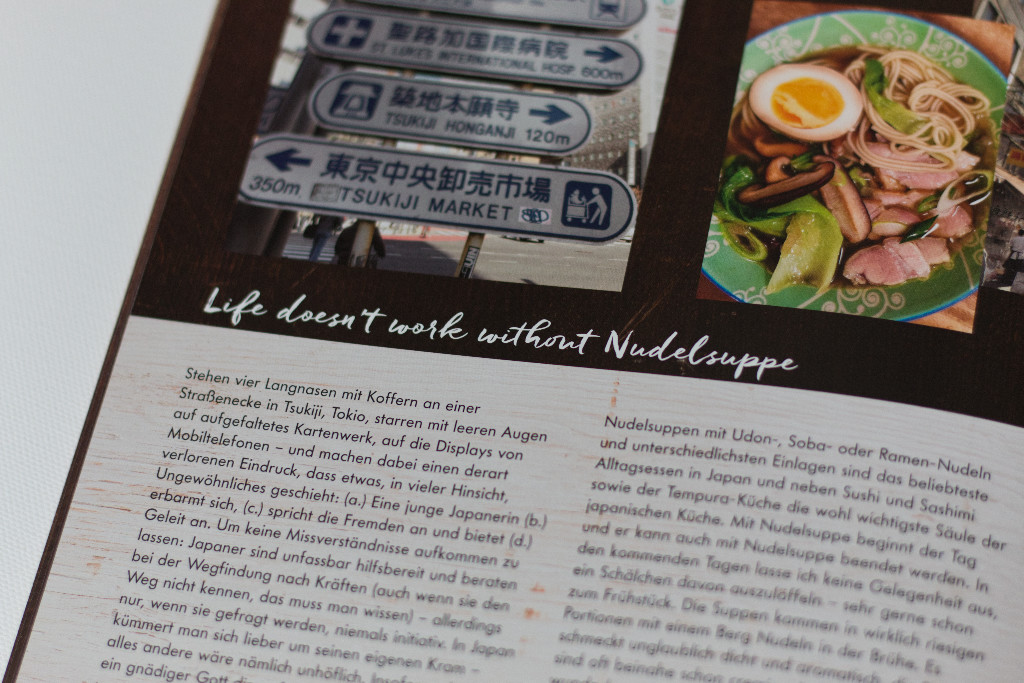 聖路加国際病院
ST LUKES INTERNATIONAL HOSP. 600m
築地本願寺
TSUKIJI HONGANJI 120m
東京中央卸売市場
350m. TSUKIJI MARKET
Life doesn't work without Nudelsuppe
Stehen vier Langnasen mit Koffern an einer
Straßenecke in Tsukiji, Tokio, starren mit leeren Augen
auf aufgefaltetes Kartenwerk, auf die Displays von
Mobiltelefonen – und machen dabei einen derart
verlorenen Eindruck, dass etwas, in vieler Hinsicht,
Ungewöhnliches geschieht: (a.) Eine junge Japanerin (b.)
erbarmt sich, (c.) spricht die Fremden an und bietet (d.)
Geleit an. Um keine Missverständnisse aufkommen zu
lassen: Japaner sind unfassbar hilfsbereit und beraten
bei der Wegfindung nach Kräften (auch wenn sie den
Weg nicht kennen, das muss man wissen) – allerdings
nur, wenn sie gefragt werden, niemals initiativ. In Japan
kümmert man sich lieber um seinen eigenen Kram –
alles andere wäre nämlich unhöflich.
ein gnädiger Gott
Nudelsuppen mit Udon-, Soba- oder Ramen-Nudeln
und unterschiedlichsten Einlagen sind das beliebteste
Alltagsessen in Japan und neben Sushi und Sashimi
sowie der Tempura-Küche die wohl wichtigste Säule der
japanischen Küche. Mit Nudelsuppe beginnt der Tag
und er kann auch mit Nudelsuppe beendet werden. In
den kommenden Tagen lasse ich keine Gelegenheit aus,
ein Schälchen davon auszulöffeln – sehr gerne schon
zum Frühstück. Die Suppen kommen in wirklich riesigen
Portionen mit einem Berg Nudeln in der Brühe. Es
schmeckt unglaublich dicht und aromatisch, die
sind oft beinahe schon